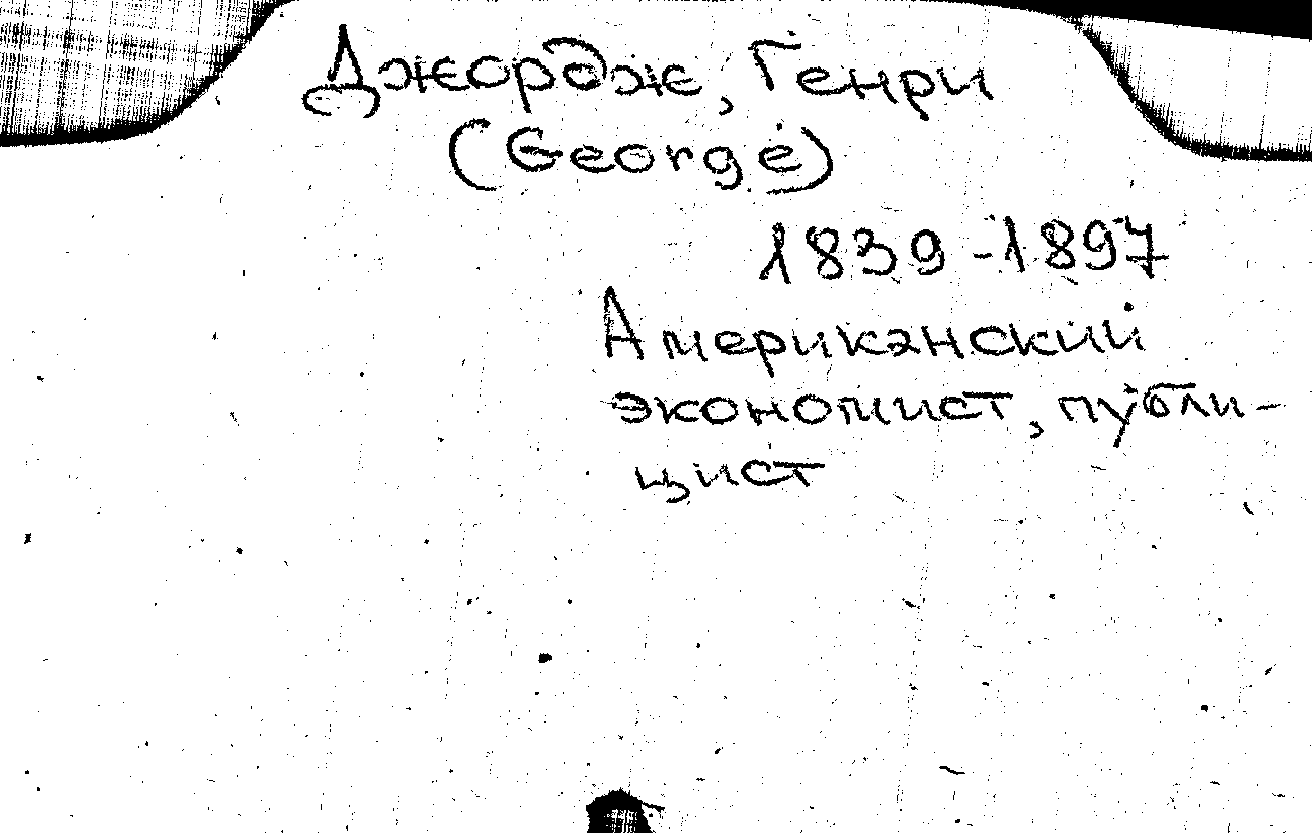 Джордж, Генри
(George)
1839-1897
Американский
экономист, публи-
цист